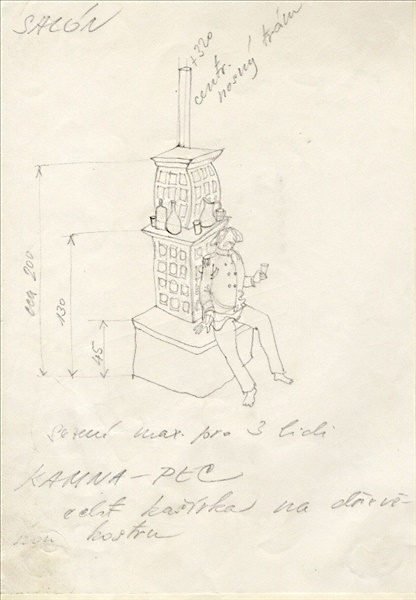 SALÓN
+320
centr.
nosný trám
cca 200
130
45
sezení max. pro 3 lidi
KAMNA-PEC
celé kašírka na dřevě-
nou kostru